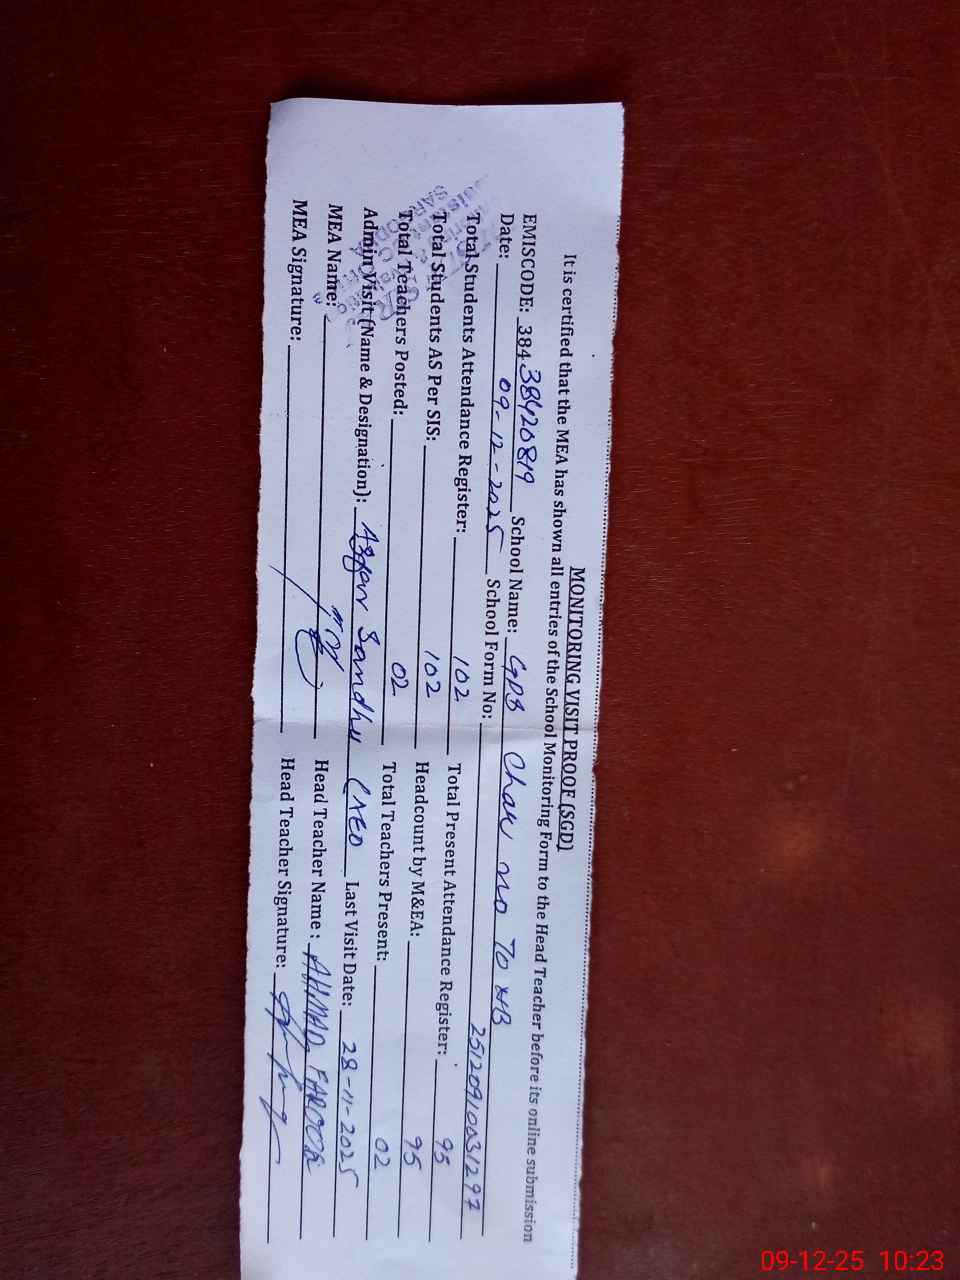 MONITORING VISIT PROOF (SGD)
It is certified that the MEA has shown all entries of the School Monitoring Form to the Head Teacher before its online submission
EMISCODE: 384 38420819 School Name: GPS Chak no 70 NB
Date: 09-12-2025 School Form No: 251209100031297
Total Students Attendance Register: 102 Total Present Attendance Register: 95
Total Students AS Per SIS: 102 Headcount by M&EA: 95
Total Teachers Posted: 02 Total Teachers Present: 02
Admin Visit (Name & Designation): Asghar Sandhu (AEO Last Visit Date: 28-11-2025
MEA Name: Head Teacher Name: AHMAD FAROOK
MEA Signature: Head Teacher Signature:
09-12-25 10:23